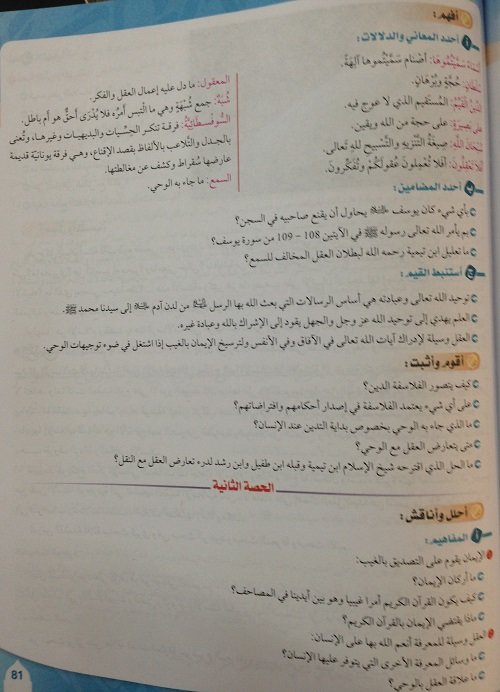 أفهم:
أ أحدد المعاني والدلالات:
أسماء سميتموها: أصنام سَمَّيْتُموها آلهةً.
سلطان: حُجَّةٍ وبُرْهانٍ.
الدين القيم: المُستقيم الذي لا عوج فيه.
على بصيرة: على حجة من الله ويقين.
سبحان الله: صِيغَةُ التَّنْزِيهِ والتَّسْبيح لله تعالى.
أفلا تعقلون: أفلا تُعْمِلونَ عُقُولَكُمْ وتُفَكِّرونَ.
المعقول: ما دل عليه إعمال العقل والفكر.
شُبَهٌ: جمع شُبْهَةٍ وهي ما التَبس أَمْرُه فلا يُدْرَى أَحَقٌّ هو أم باطل.
السُّوفِسْطائِيَّةُ: فرقة تنكر الحِسِّيات والبديهيات وغيرها، وتُعْنى
بالجدل والتَّلاعب بالألفاظ بقصد الإقناع، وهي فرقة يونانيَّة قديمة
عارضها سُقراط وكشف عن مغالطتها.
السمع: ما جاء به الوحي.
ب أحدد المضامين:
بأي شيء كان يوسف عليه السلام يحاول أن يقنع صاحبيه في السجن؟
بم يأمر الله تعالى رسوله ﷺ في الآيتين 108 – 109 من سورة يوسف؟
ما تعليل ابن تيمية رحمه الله لبطلان العقل المخالف للسمع؟
ج أستنبط القيم:
توحيد الله تعالى وعبادته هي أساس الرسالات التي بعث الله بها الرسل من لدن آدم عليه السلام إلى سيدنا محمد ﷺ.
العلم يهدي إلى توحيد الله عز وجل والجهل يقود إلى الإشراك بالله وعبادة غيره.
العقل وسيلة لإدراك آيات الله تعالى في الآفاق وفي الأنفس ولترسيخ الإيمان بالغيب إذا اشتغل في ضوء توجيهات الوحي.
أقوم وأثبت:
كيف يتصور الفلاسفة الدين؟
على أي شيء يعتمد الفلاسفة في إصدار أحكامهم وافتراضاتهم؟
ما الذي جاء به الوحي بخصوص بداية التدين عند الإنسان؟
متى يتعارض العقل مع الوحي؟
ما الحل الذي اقترحه شيخ الإسلام ابن تيمية وقبله ابن طفيل وابن رشد لدرء تعارض العقل مع النقل؟
الحصة الثانية
أحلل وأناقش:
أ المفاهيم:
الإيمان يقوم على التصديق بالغيب:
ما أركان الإيمان؟
كيف يكون القرآن الكريم أمرا غيبيا وهو بين أيدينا في المصاحف؟
ماذا يقتضي الإيمان بالقرآن الكريم؟
العقل وسيلة للمعرفة أنعم الله بها على الإنسان:
ما وسائل المعرفة الأخرى التي يتوفر عليها الإنسان؟
ما علاقة العقل بالوحي؟
81